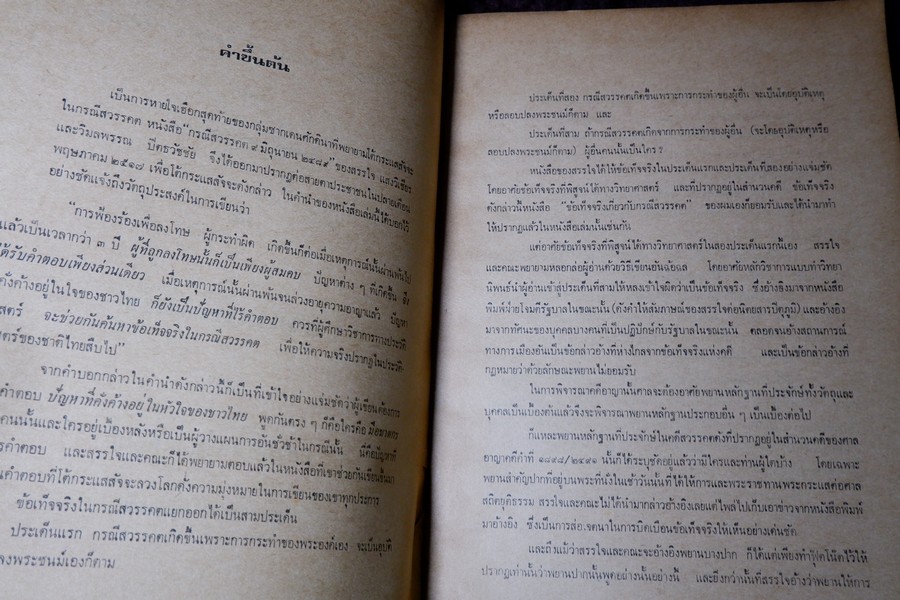 คำขึ้นต้น
เป็นการหายใจเฮือกสุดท้ายของกลุ่มซากเดนศักดินาที่พยายามโต้กระแสสัจจะ
ในกรณีสวรรคต หนังสือ "กรณีสวรรคต ๙ มิถุนายน ๒๔๘๙" ของสรรใจ แสงวิเชียร
และวิมลพรรณ ปีตธวัชชัย จึงได้ออกมาปรากฏต่อสายตาประชาชนในปลายเดือน
พฤษภาคม ๒๕๑๗ เพื่อโต้กระแสสัจจะดังกล่าว ในคำนำของหนังสือเล่มนี้ได้บอกไว้
อย่างชัดแจ้งถึงวัตถุประสงค์ในการเขียนว่า
"การฟ้องร้องเพื่อลงโทษ ผู้กระทำผิด เกิดขึ้นก็ต่อเมื่อเหตุการณ์นั้นผ่านพ้นไป
แล้วเป็นเวลากว่า ๓ ปี ผู้ที่ถูกลงโทษนั้นก็เป็นเพียงผู้สมคบ ปัญหาต่าง ๆ ที่เกิดขึ้น จึง
ได้รับคำตอบเพียงส่วนเดียว เมื่อเหตุการณ์นั้นผ่านพ้นจนล่วงอายุความอาญาแล้ว ปัญหา
คั่งค้างอยู่ในใจของชาวไทย ก็ยังเป็นปัญหาที่ไร้คำตอบ ควรที่ผู้ศึกษาวิชาการทางประวัติ
สตร์ จะช่วยกันค้นหาข้อเท็จจริงในกรณีสวรรคต เพื่อให้ความจริงปรากฏในประวัติ-
สตร์ของชาติไทยสืบไป"
จากคำบอกกล่าวในคำนำดังกล่าวนี้ก็เป็นที่เข้าใจอย่างแจ่มชัดว่าผู้เขียนต้องการ
คำตอบ ปัญหาที่คั่งค้างอยู่ในหัวใจของชาวไทย พูดกันตรง ๆ ก็คือใครคือ มือฆาตกร
คนนั้นและใครอยู่เบื้องหลังหรือเป็นผู้วางแผนการอันชั่วช้าในกรณีนั้น นี่คือปัญหาที่
คำตอบ และสรรใจและคณะก็ได้พยายามตอบแล้วในหนังสือที่เขาช่วยกันเรียบเรียงขึ้นมา
นคำตอบที่โต้กระแสสัจจะลวงโลกดังความมุ่งหมายในการเขียนของเขาทุกประการ
ข้อเท็จจริงในกรณีสวรรคตแยกออกได้เป็นสามประเด็น
ประเด็นแรก กรณีสวรรคตเกิดขึ้นเพราะการกระทำของพระองค์เอง จะเป็นอุบัติ
ลงพระชนม์เองก็ตาม
ประเด็นที่สอง กรณีสวรรคตเกิดขึ้นเพราะการกระทำของผู้อื่น จะเป็นโดยอุบัติเหตุ
หรือลอบปลงพระชนม์ก็ตาม และ
ประเด็นที่สาม ถ้ากรณีสวรรคตเกิดจากการกระทำของผู้อื่น (จะโดยอุบัติเหตุหรือ
ลอบปลงพระชนม์ก็ตาม) ผู้อื่นคนนั้นเป็นใคร ?
หนังสือของสรรใจได้ให้ข้อเท็จจริงในประเด็นแรกและประเด็นที่สองอย่างแจ่มชัด
โดยอาศัยข้อเท็จจริงที่พิสูจน์ได้ทางวิทยาศาสตร์ และที่ปรากฏอยู่ในสำนวนคดี ข้อเท็จจริง
ดังกล่าวนี้หนังสือ "ข้อเท็จจริงเกี่ยวกับกรณีสวรรคต" ของผมเองก็ยอมรับและได้นำมาทำ
ให้ปรากฏแล้วในหนังสือเล่มนั้นเช่นกัน
แต่อาศัยข้อเท็จจริงที่พิสูจน์ได้ทางวิทยาศาสตร์ในสองประเด็นแรกนี้เอง สรรใจ
และคณะพยายามหลอกล่อผู้อ่านด้วยวิธีเขียนอันฉ้อฉล โดยอาศัยหลักวิชาการแบบทำวิทยา
นิพนธ์นำผู้อ่านเข้าสู่ประเด็นที่สามให้หลงเข้าใจผิดว่าเป็นข้อเท็จจริง ซึ่งอ้างอิงมาจากหนังสือ
พิมพ์จ่ายใจมีรัฐบาลในขณะนั้น (ดังคำให้สัมภาษณ์ของสรรใจต่อนิตยสารปิตุภูมิ) และอ้างอิง
มาจากทัศนะของบุคคลบางคนที่เป็นปฏิปักษ์กับรัฐบาลในขณะนั้น ตลอดจนอ้างสถานการณ์
ทางการเมืองอันเป็นข้อกล่าวอ้างที่ห่างไกลจากข้อเท็จจริงแห่งคดี และเป็นข้อกล่าวอ้างที่
กฎหมายว่าด้วยลักษณะพยานไม่ยอมรับ
ในการพิจารณาคดีอาญานั้นศาลจะต้องอาศัยพยานหลักฐานที่ประจักษ์ทั้งวัตถุและ
บุคคลเป็นเบื้องต้นแล้วจึงจะพิจารณาพยานหลักฐานประกอบอื่น ๆ เป็นเบื้องต่อไป
ก็แหละพยานหลักฐานที่ประจักษ์ในคดีสวรรคตดังที่ปรากฏอยู่ในสำนวนคดีของศาล
อาญาคดีดำที่ ๑๘๙๘/๒๔๙๑ นั้นก็ได้ระบุชัดอยู่แล้วว่ามีใครและท่านผู้ใดบ้าง โดยเฉพาะ
พยานสำคัญปากที่อยู่บนพระที่นั่งในเช้าวันนั้นที่ได้ให้การและพระราชทานพระกระแสต่อศาล
สถิตยุติธรรม สรรใจและคณะไม่ได้นำมากล่าวอ้างอิงเลยแต่ไพล่ไปเก็บเอาข่าวจากหนังสือพิมพ์
มาอ้างอิง ซึ่งเป็นการส่อเจตนาในการบิดเบือนข้อเท็จจริงให้เห็นอย่างเด่นชัด
และถึงแม้ว่าสรรใจและคณะจะอ้างอิงพยานบางปาก ก็ได้แต่เพียงทำฟุตโน้ตไว้ให้
ปรากฏเท่านั้นว่าพยานปากนั้นพูดอย่างนั้นอย่างนี้ และยิ่งกว่านั้นที่สรรใจอ้างว่าพยานให้การ